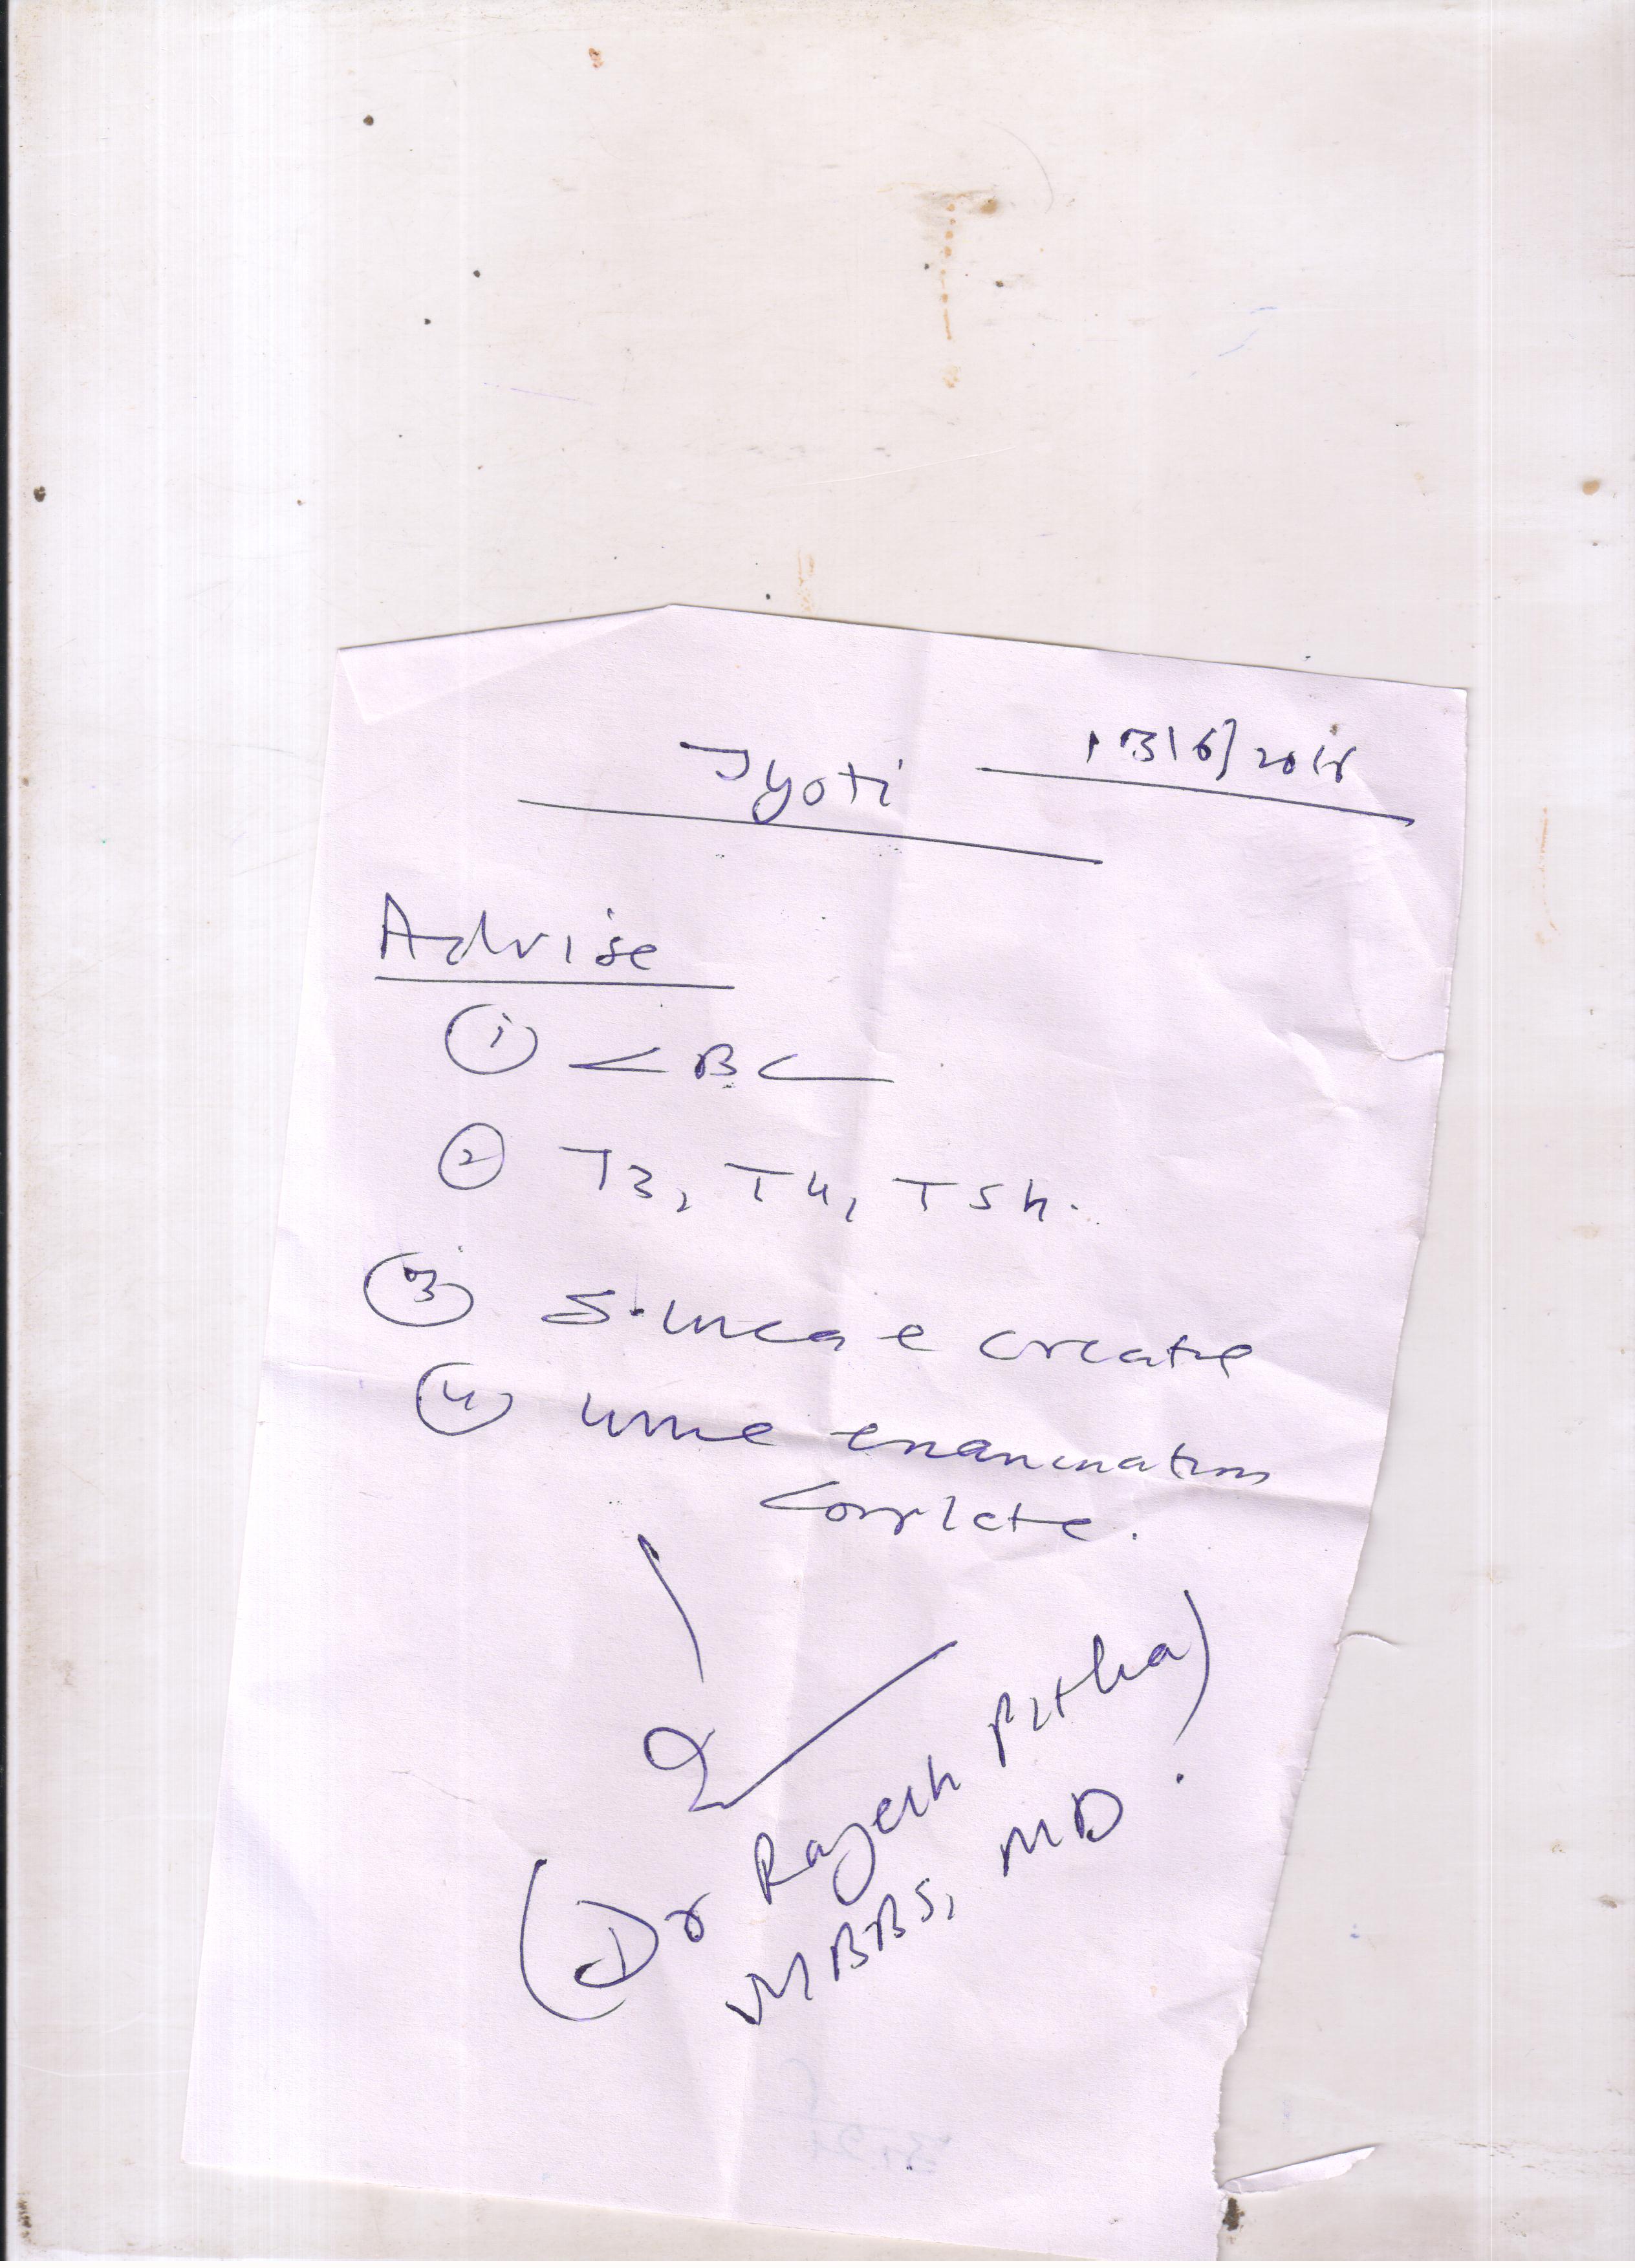 Jyoti 13/6/2018
Advise
① CBC
② T3, T4, TSh.
③ S. urea e creatie
④ urine examination
complete.
(Dr Rajesh
MBBS, MD.